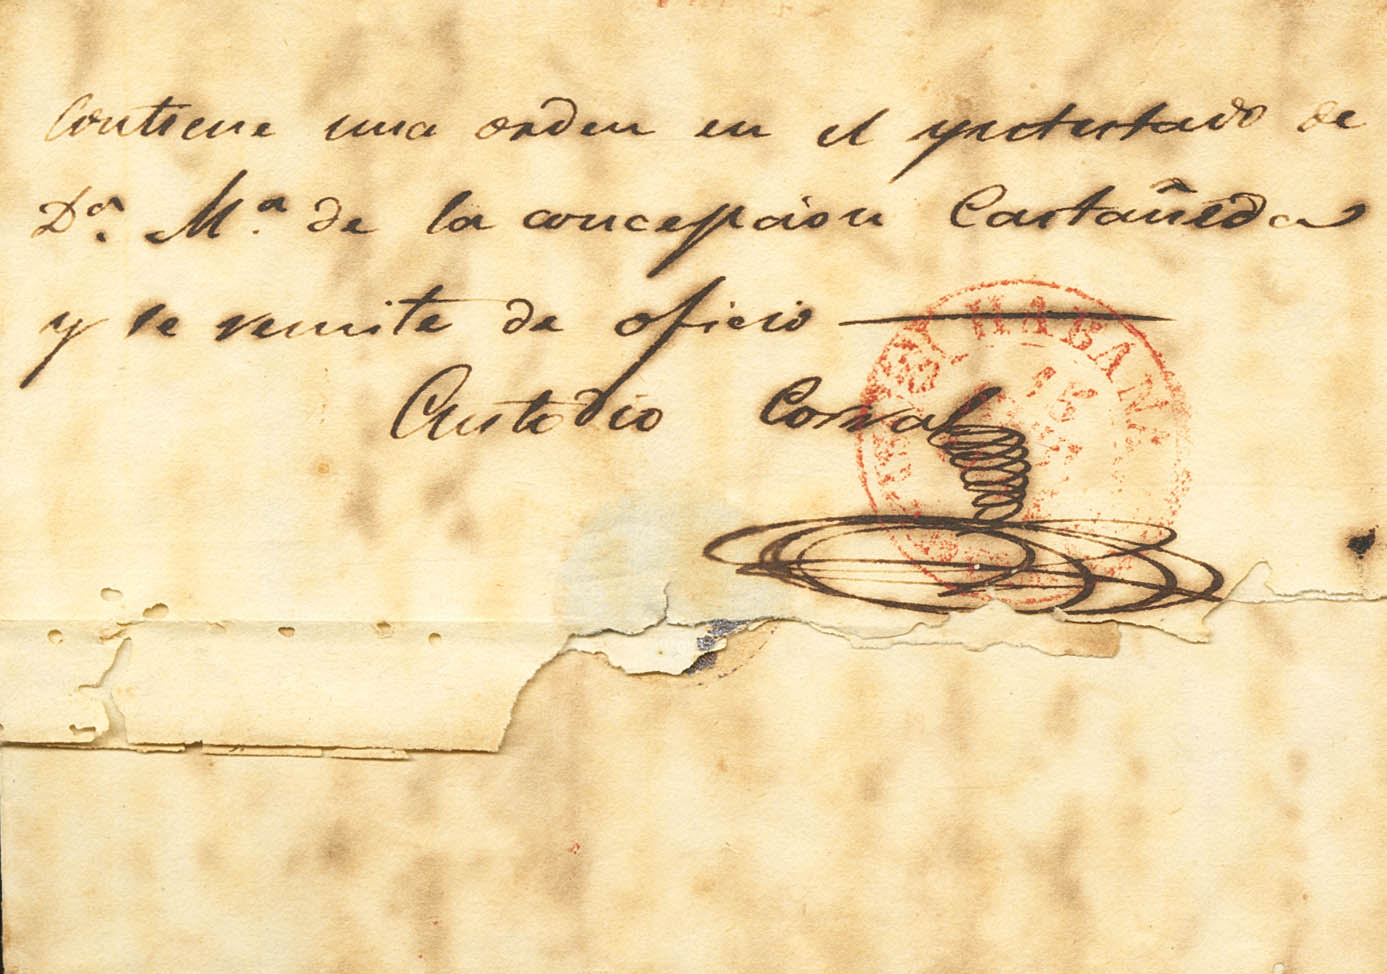 Contiene una orden en el yntestado de
Dª. Mª. de la concepcion Castañeda
y se remite de oficio
Custodio Corral
HABANA
15